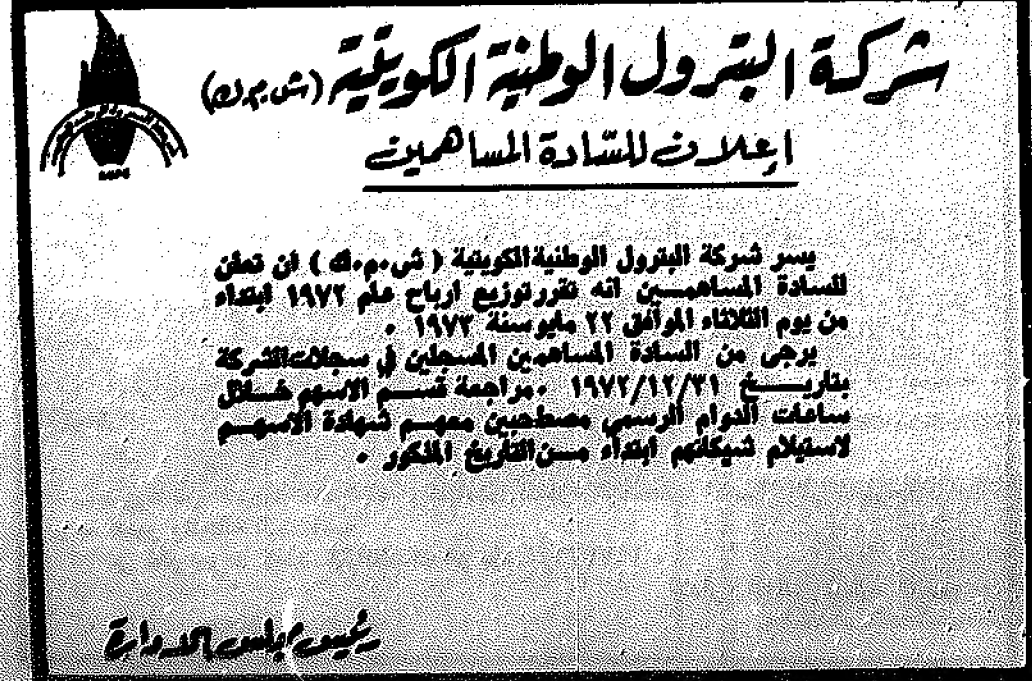 شركة البترول الوطنية الكويتية (ش.م.ك)
إعلان للسّادة المساهمين
يسر شركة البترول الوطنية الكويتية ( ش.م.ك ) ان تعلن
للسادة المساهمـــين انه تقرر توزيع ارباح عام ١٩٧٢ ابتداء
من يوم الثلاثاء الموافق ٢٢ مايو سنة ١٩٧٣ .
يرجى من السادة المساهمين المسجلين في سجلات الشركة
بتاريـــــخ ١٩٧٢/١٢/٣١ . مراجعة قســـم الاسهم خـــلال
ساعات الدوام الرسمي مصطحبين معهـــم شهادة الاسهـــم
لاستيلام شيكاتهم ابتداء مـــن التاريخ المذكور .
رئيس مجلس الادارة